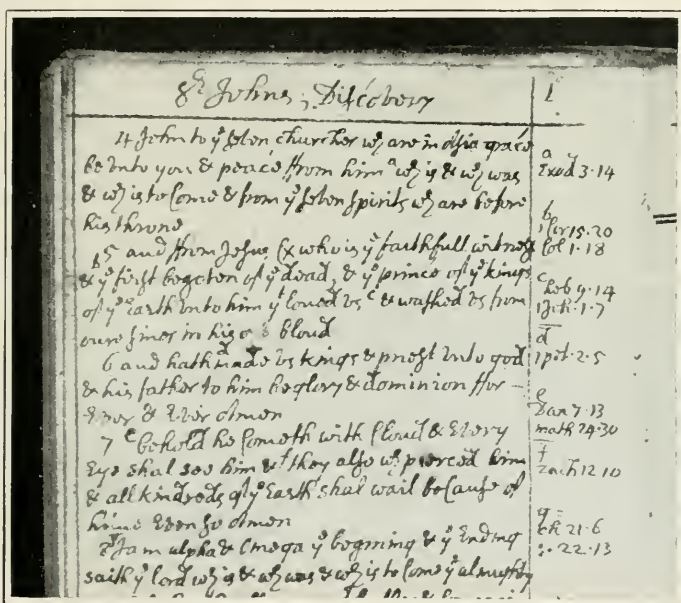 St Johns Discovery 1
4 John to ye seven churches wch are in Asia grace
be unto you & peace ffrom him a wch is & wch was
& wch is to Come & from ye seven spirits wch are before
his throne
b 5 and ffrom Jesus Cx who is ye faithfull witness
& ye first begotten of ye dead & ye prince of ye kings
of ye earth unto him yt loued us c & washed us from
oure sines in his bloud
6 and hath d made us kings & priest unto god
& his father to him be glory & dominion ffor
Ever & Ever Amen
7 e behold he Cometh with Cloud & Every
Eye shal see him & f they also wch pierced him
& all kindreds of ye Earth shal wail because of
him Even so Amen
g I am alpha & Omega ye begining & ye Ending
saith ye lord wch is & wch was & wch is to Come ye almighty
a
Exod 3·14
b
1 Cor 15·20
Col 1·18
c
heb 9·14
1 Joh·1·7
d
1 pet·2·5
e
Dan 7·13
math 24·30
f
Zach 12 10
g
ch 21·6
22·13